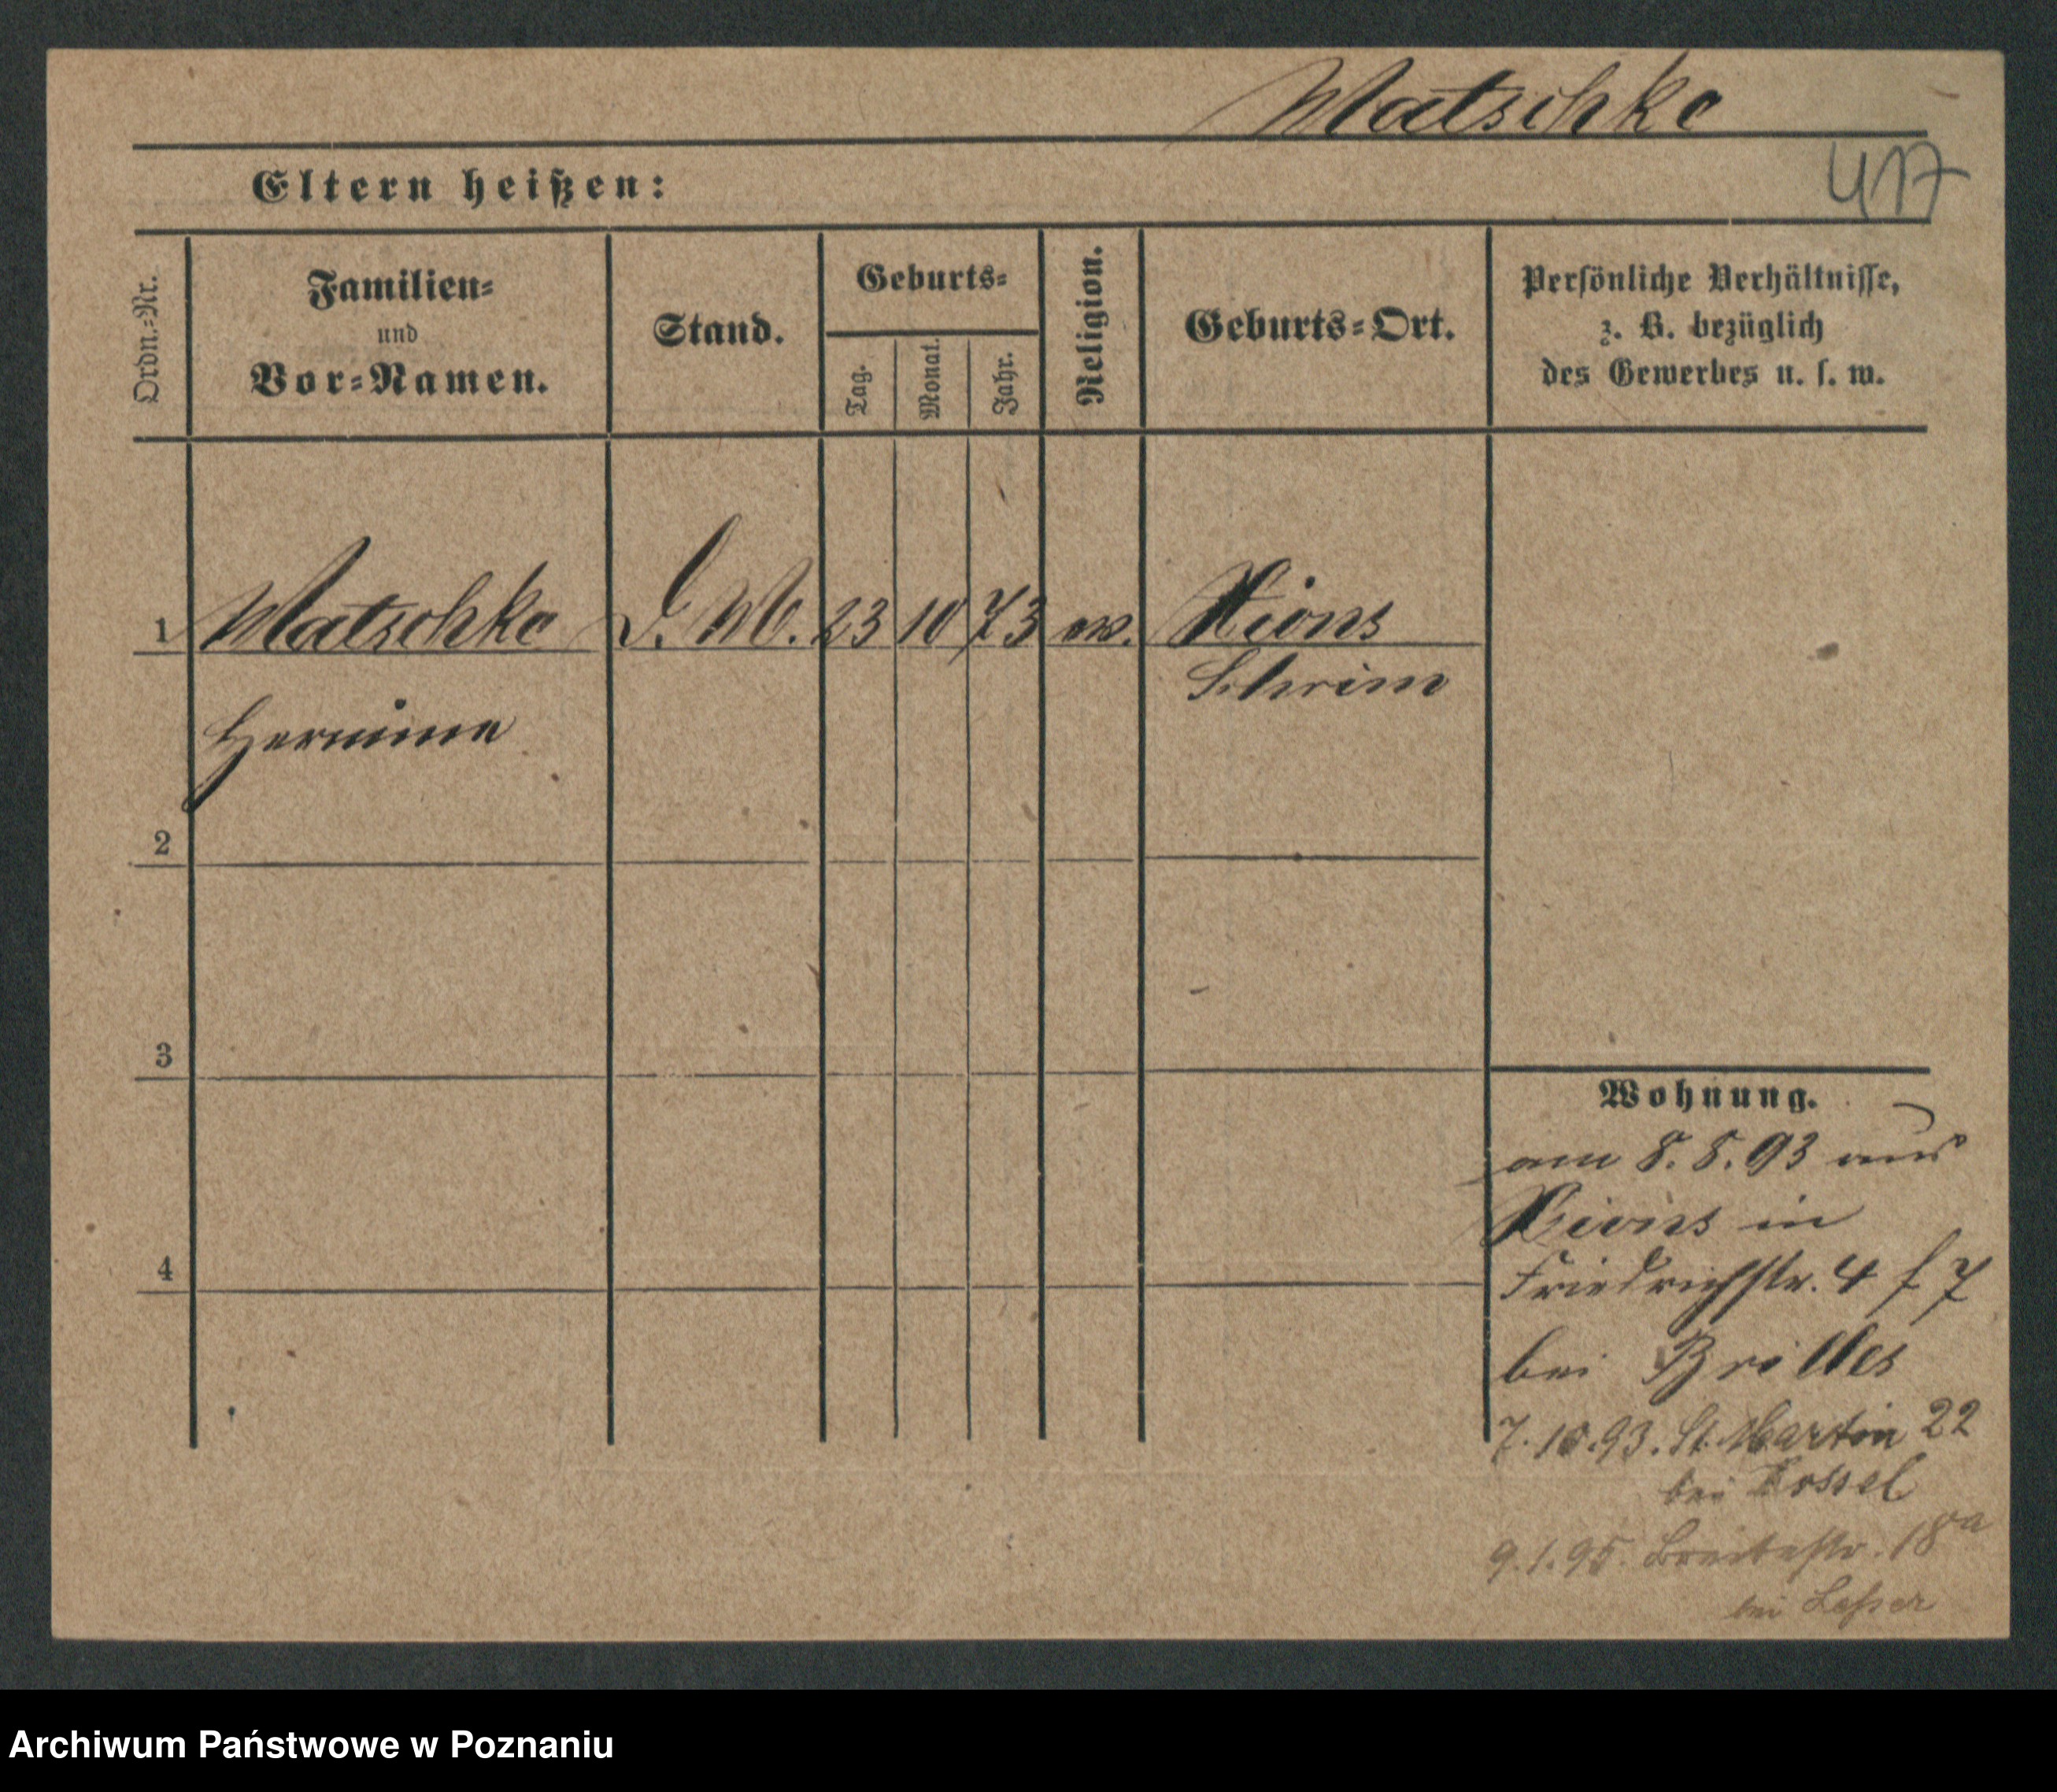 Matschke
417
Eltern heißen:
Ordn.=Nr.
Familien=
und
Vor=Namen.
Stand.
Geburts=
Tag.
Monat.
Jahr.
Religion.
Geburts=Ort.
Persönliche Verhältnisse,
z. B. bezüglich
des Gewerbes u. s. w.
1 Matschke D. M. 23 10 73 ev. Xions
Schrim
Hermine
2
3
4
Wohnung.
am 8.8.93 aus
Xions in
Friedrichstr. 4 f 7
bei Brilles
7.10.93. St. Martin 22
bei Kossel
9.1.95. Breitestr. 18a
bei Lesser
Archiwum Państwowe w Poznaniu